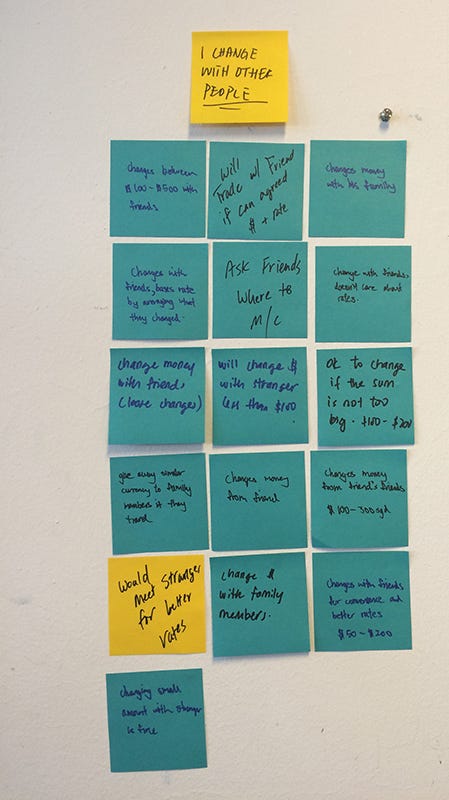 I CHANGE
WITH OTHER
PEOPLE
changes between
$100-$500 with
friends
Will
Trade w/ Friend
if can agreed
$ + rate
changes money
with his family
Changes with
friends, bases rate
by averaging what
they changed.
ASK Friends
Where to
M/C
Change with friends,
doesn't care about
rates.
change money
with friends
(loose changes)
will change $
with stranger
less than $100.
OK to change
if the sum
is not too
big. $100-$200
give away similar
currency to family
members if they
travel
Changes money
from friend
Changes money
from friend's friends
$100-300sgd
Would
meet stranger
for better
rates
change $
with family
members.
Changes with friends
for convenience and
better rates
$50-$200
changing small
amount with stranger
is fine